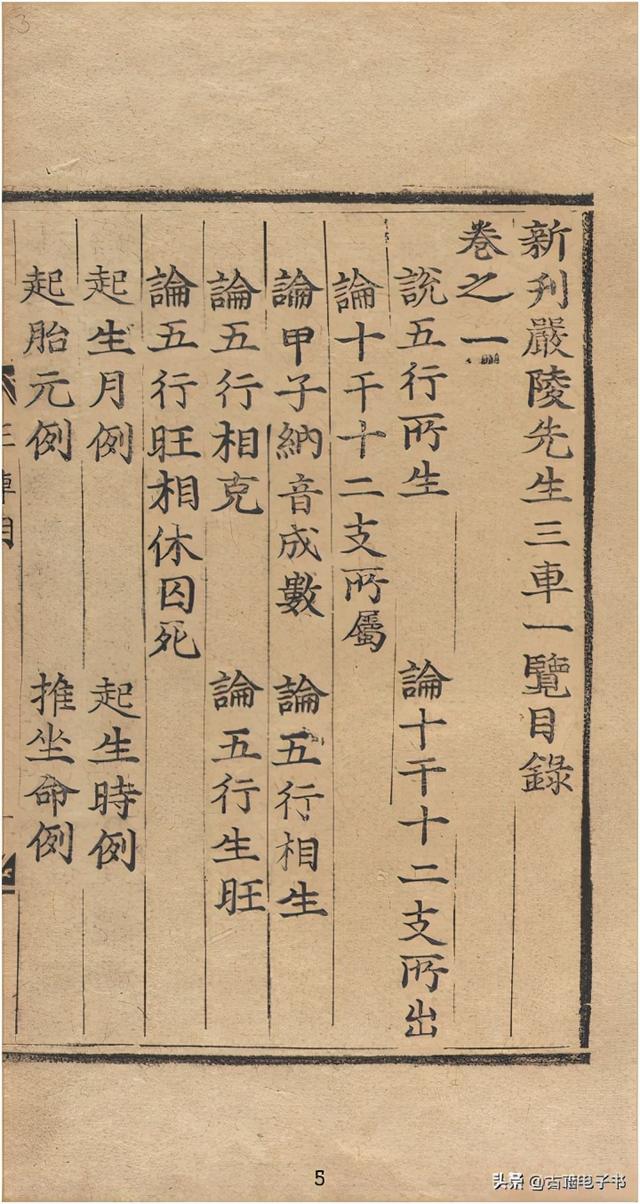 新刋嚴陵先生三車一覽目錄
卷之一
說五行所生 論十干十二支所出
論十干十二支所屬
論甲子納音成數 論五行相生
論五行相克 論五行生旺
論五行旺相休囚死
起生月例 起生時例
起胎元例 推坐命例
5
头条 @古籍电子书